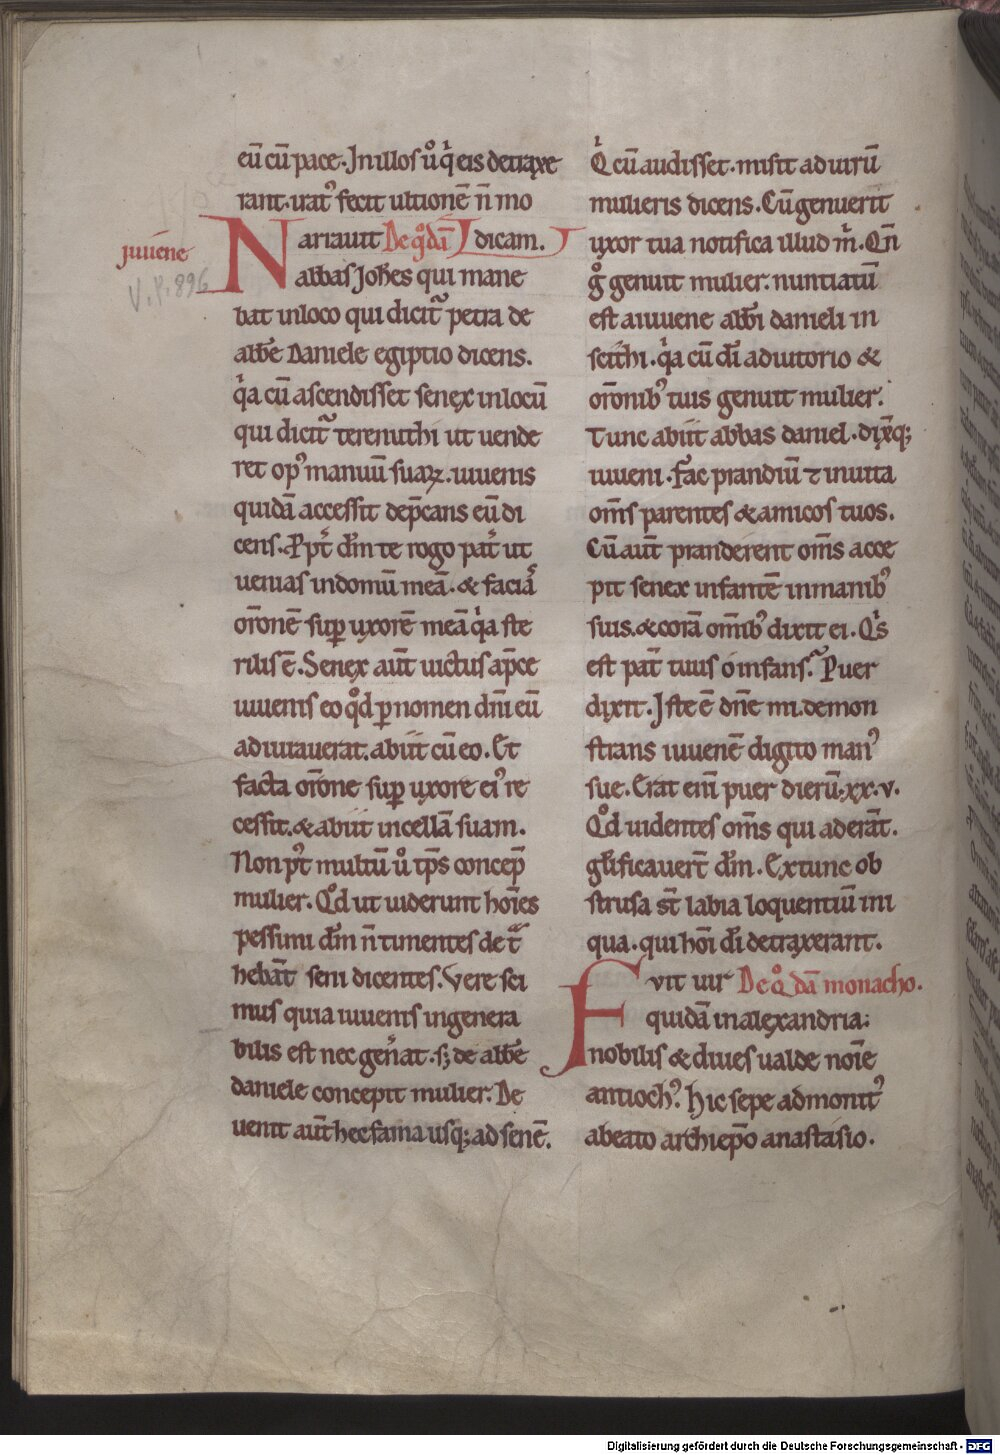 eū cū pace. In illos ů q̊ eis detraxe
rant. uat᷒ fecit ultionē n̄ mo
Narrauit De q̊dā dicam.
iuuene
V. P. 896
abbas Joh̄es qui mane
bat in loco qui dicit᷑ petra de
abb̄e Daniele egiptio dicens.
q̇a cū ascendisset senex in locū
qui dicit᷑ terenuthi ut uende
ret op᷒ manuū suaꝝ. iuuenis
quidā accessit dep̄cans eū di
cens. Ꝓpt̄ dn̄m te rogo pat̄ ut
uenias in domū meā. & faciā
or̄onē suꝑ uxorē meā q̇a ste
rilis ē. Senex aut̄ uictus ap̄ce
iuuenis eo q̊d ꝑ nomen dn̄i eū
adiurauerat. abiit cū eo. Et
facta or̄one suꝑ uxorē ei᷒ re
cessit. & abiit in cellā suam.
Non p᷒t multū ů tp̄s concep̄
mulier. Q̊d ut uiderunt hoīes
pessimi dm̄ n̄ timentes det᷑
hebāt seni dicentes. Vere sci
mus quia iuuenis ingenera
bilis est nec gen̄at. s; de abb̄e
daniele concepit mulier. De
uenit aut̄ hec fama usq; ad senē.
Q̇ cū audisset. misit ad uirū
mulieris dicens. Cū genuerit
uxor tua notifica illud ṁ. Qn̄
g̊ genuit mulier. nuntiatū
est a iuuene abb̄i danieli in
scithi. q̇a cū dī adiutorio &
or̄onib᷒ tuis genuit mulier.
Tunc abiit abbas daniel. dix̄q;
iuueni. Fac prandiū ⁊ inuita
om̄s parentes & amicos tuos.
Cū aut̄ pranderent om̄s acce
pit senex infantē in manib᷒
suis. & corā om̄ib᷒ dixit ei. Q̇s
est pat̄ tuus o infans? Puer
dixit. Iste ē dn̄e mi. demon
strans iuuenē digito man᷒
sue. Erat enī puer dierū. xx. v.
Q̊d uidentes om̄s qui aderāt.
gl̄ificauert̄ dm̄. Ex tunc ob
strusa st̄ labia loquentiū ini
qua. qui hōi dī detraxerant.
Fvit uir De q̊dā monacho.
quidā in alexandria:
nobilis & diues ualde noīe
antioch᷒. Hic sepe admonit᷒
a beato archiep̄o anastasio.
Digitalisierung gefördert durch die Deutsche Forschungsgemeinschaft - DFG